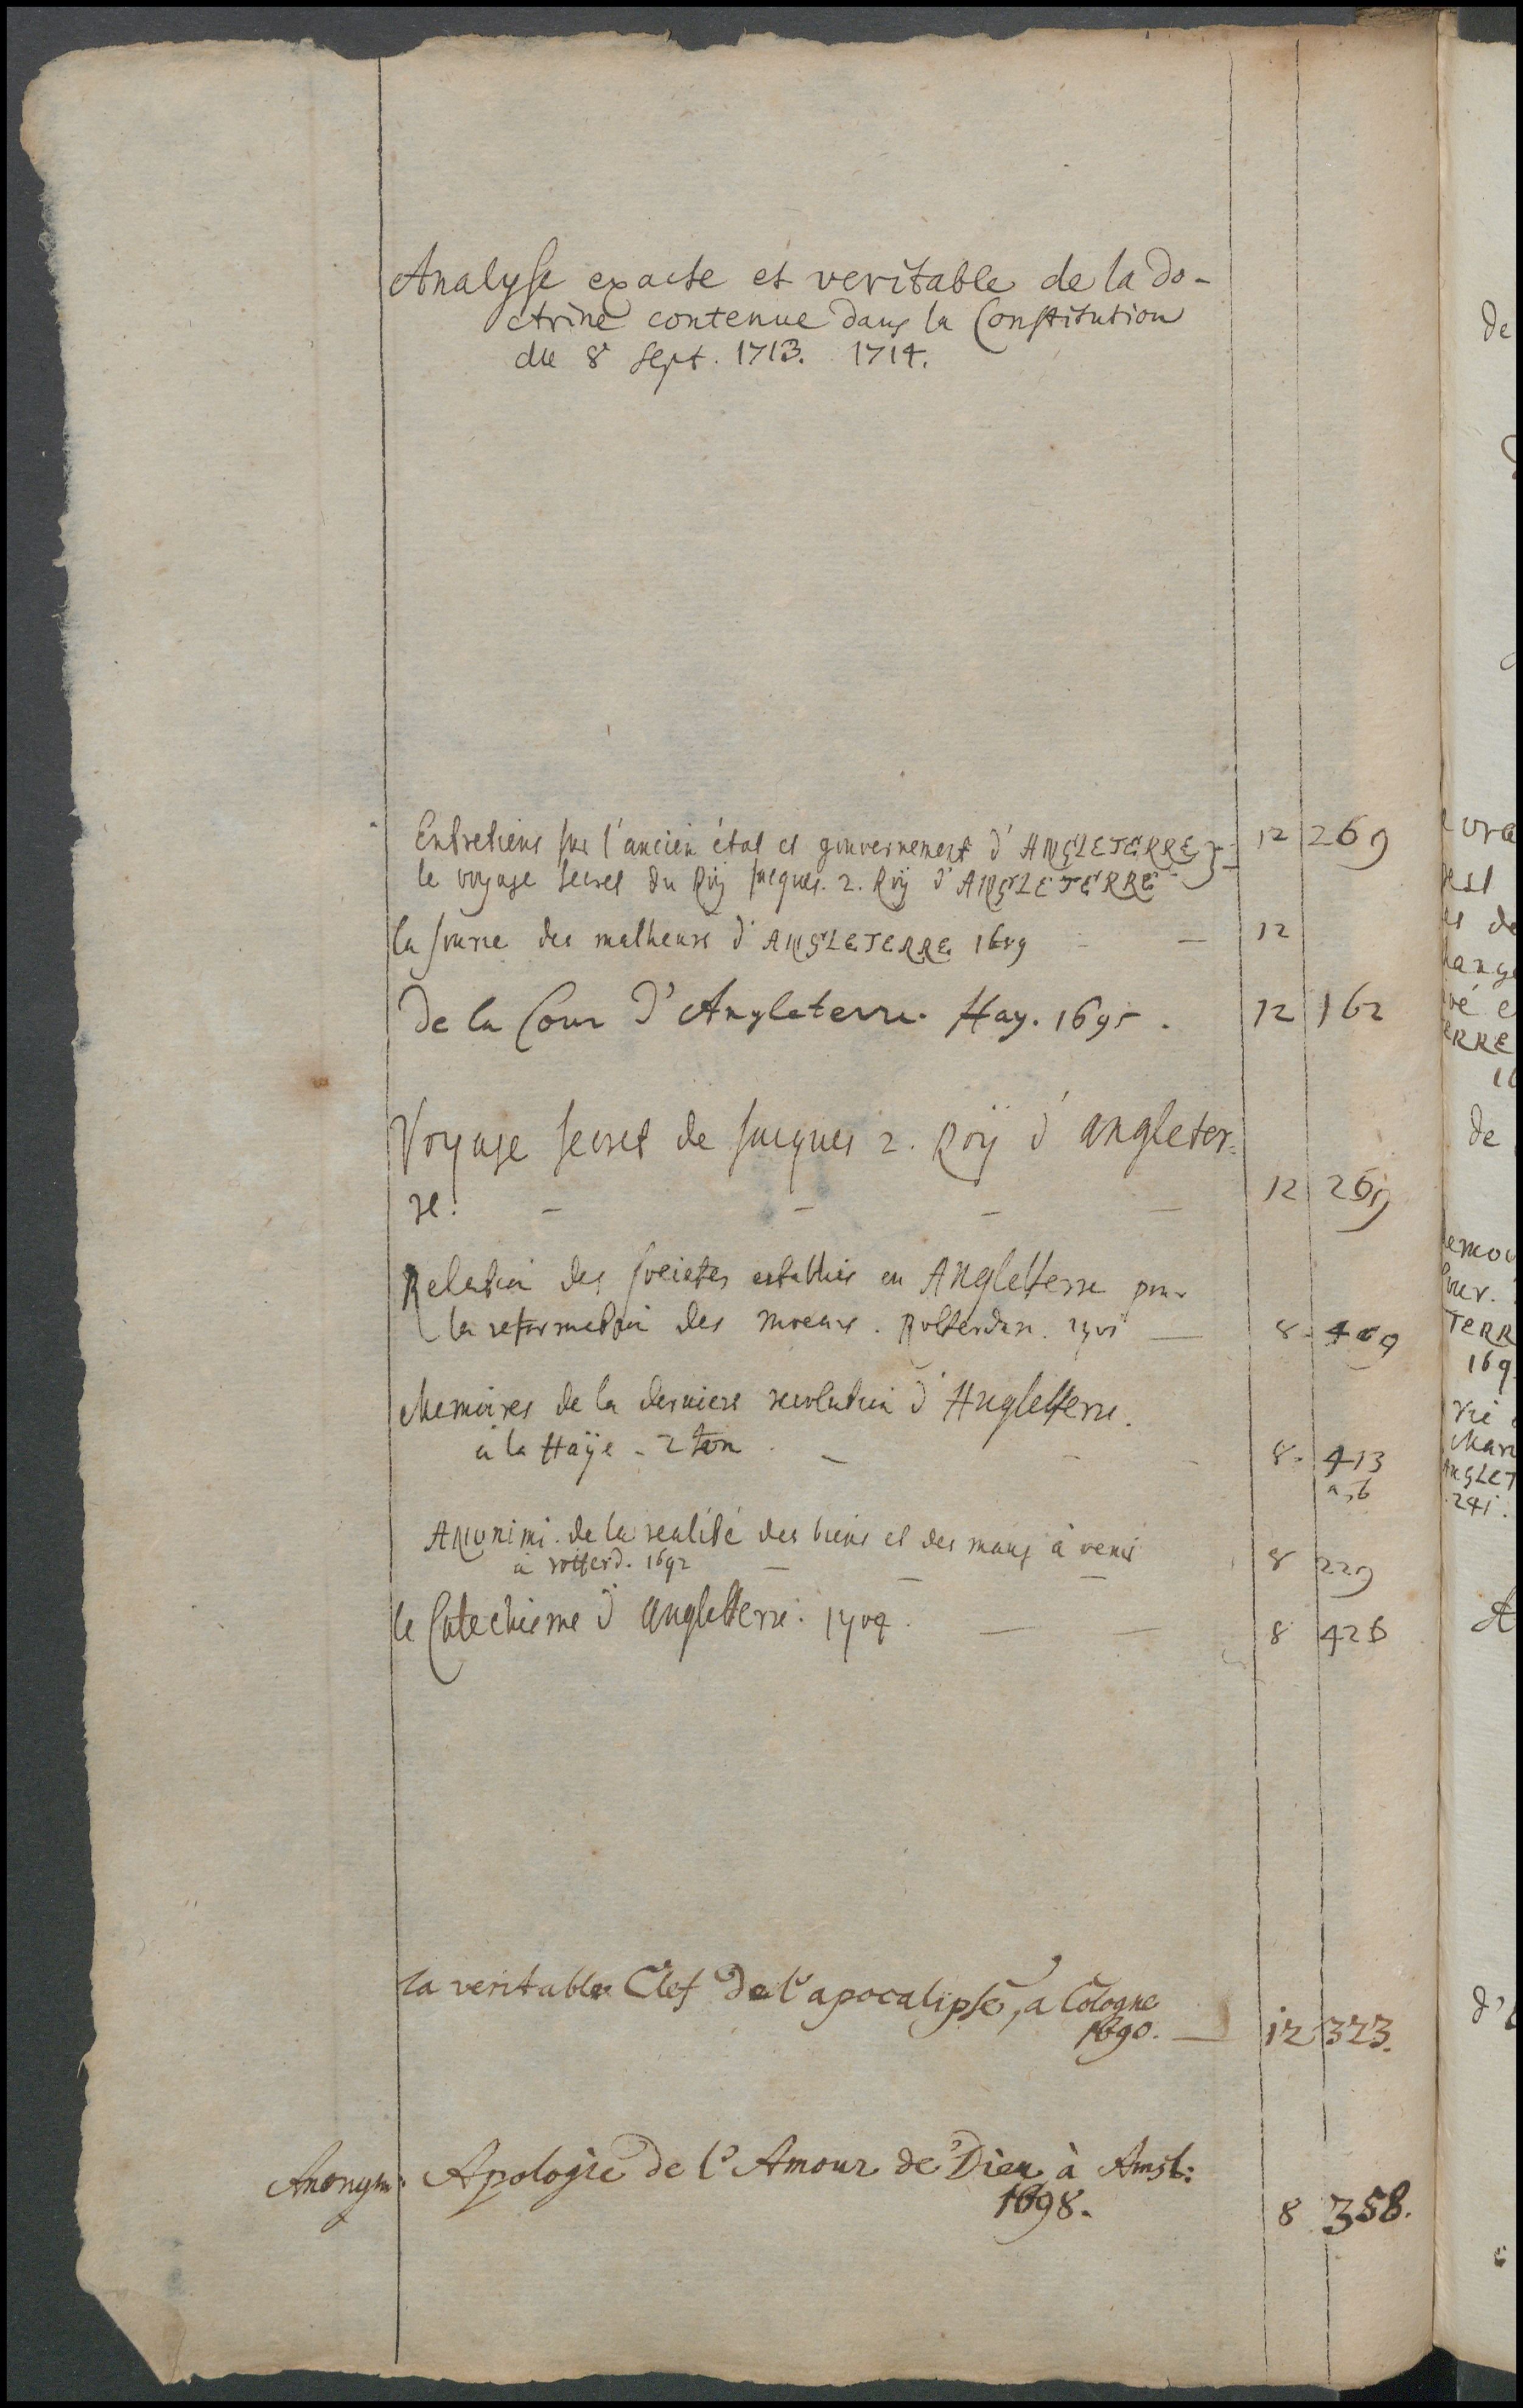 Analyse exacte et veritable de la do-
ctrine contenue dans la Constitution
du 8 Sept. 1713. 1714.
Entretiens sur l'ancien état et gouvernement d'ANGLETERRE 12 269
le voyage secret du Roy Jacques. 2. Roÿ d'ANGLETERRE
la source des malheurs d'ANGLETERRE 1689 - - 12
De la Cour d'Angleterre. Hay. 1695. 12 162
Voyage secret de Jacques 2. Roÿ d'angleter-
re. - - - - 12 269
Relation des societes establies en Angleterre pour
la reformation des moeurs. Rotterdam. 1701 — 8. 409
Memoires de la derniere revolution d'Angleterre.
à la Haÿe - 2 tom. - - - 8. 413
a, b
ANONIMI. de la realité des biens et des maux à venir
à rotterd. 1692 - - - 8 229
le Catechisme d'angletterre. 1704. — — 8 426
la veritable Clef de l'apocalipse, a Cologne
1690. — 12 323.
Anonym: Apologie de l'Amour de Dieu à Amst:
1698. 8 358.
de
de
ERRE
TERR
169
vie
Mare
ANGLET
241.